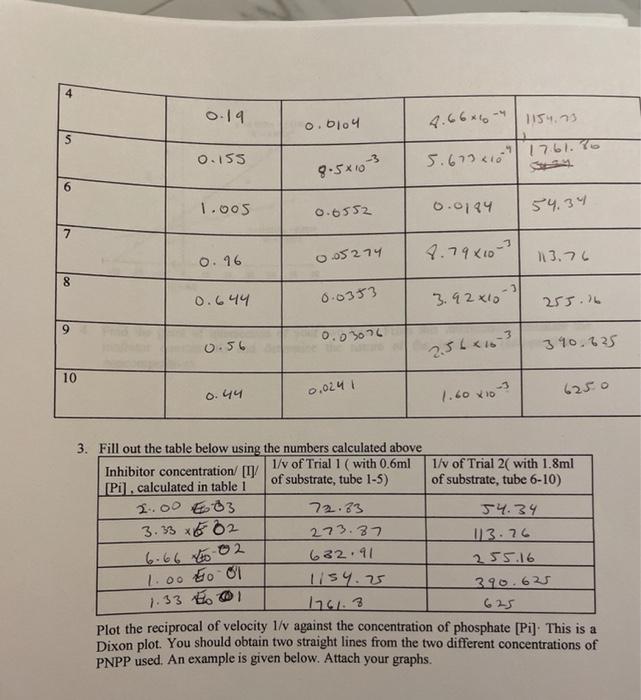 4
0.19 0.0104 8.66x10⁻⁴ 1154.73
5
0.155 8.5x10⁻³ 5.673x10⁻⁴ 1761.80
6
1.005 0.0552 0.0184 54.34
7
0.96 0.05274 8.79x10⁻³ 113.76
8
0.644 0.0353 3.92x10⁻³ 255.16
9
0.56 0.03076 2.56x10⁻³ 390.625
10
0.44 0.0241 1.60x10⁻³ 625.0
3. Fill out the table below using the numbers calculated above
Inhibitor concentration/ [I]/ [Pi], calculated in table 1
1/v of Trial 1 ( with 0.6ml of substrate, tube 1-5)
1/v of Trial 2( with 1.8ml of substrate, tube 6-10)
72.83 54.34
3.33 02 273.37 113.76
6.66 02 632.91 255.16
1.00 01 1154.75 390.625
1.33 01 1761.8 625
Plot the reciprocal of velocity 1/v against the concentration of phosphate [Pi]. This is a
Dixon plot. You should obtain two straight lines from the two different concentrations of
PNPP used. An example is given below. Attach your graphs.